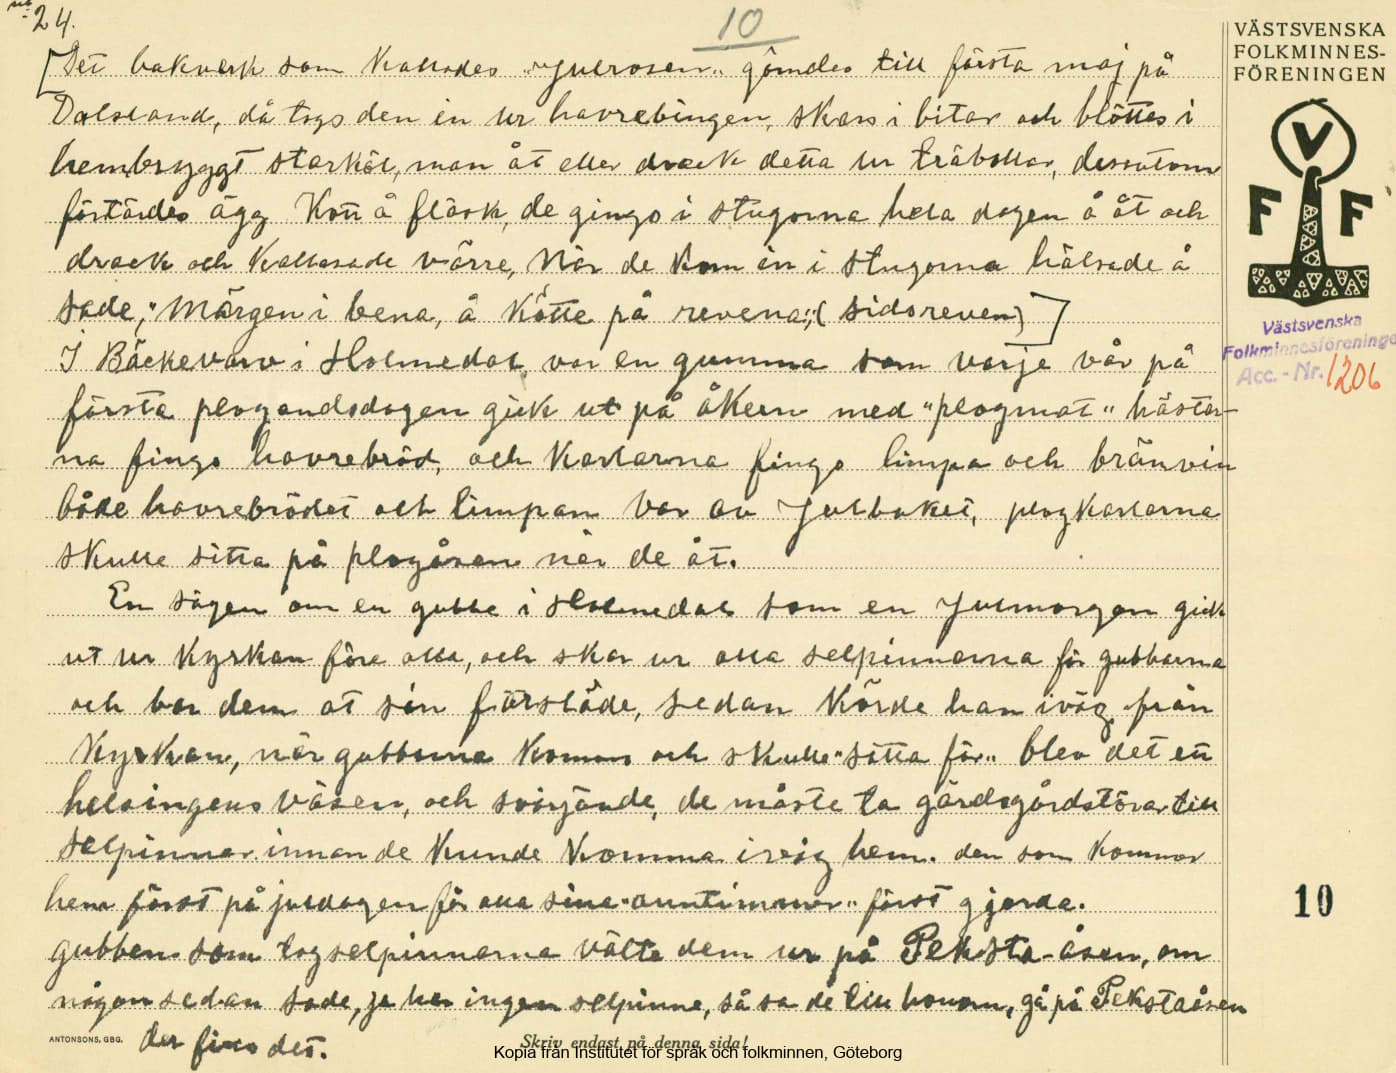 24.
10
[Det bakverk som kallades "Julrosen" gömdes till första maj på
Dalsland, då togs den in ur havrebingen, skars i bitar och blöttes i
hembryggt starköl, man åt eller drack detta ur träbollar, dessutom
förtärdes ägg kött å fläsk, de gingo i stugorna hela dagen å åt och
drack och kallasade värre, När de kom in i stugorna hälsade å
sade, "Märgen i bena, å kötte på revena", (sidoreven)]
I Bäckevarv i Holmedal var en gumma som varje vår på
första plogandsdagen gick ut på åkern med "plogmat" hästar-
na fingo havrebröd, och karlarna fingo limpa och bränvin
både havrebrödet och limpan var av Julbaket, plogkarlarna
skulle sitta på plogåsen när de åt.
En sägen om en gubbe i Holmedal som en Julmorgon gick
ut ur kyrkan före alla, och skar ur alla selpinnarna för gubbarna
och bar dem åt sin färsläde, sedan körde han iväg från
kyrkan, när gubbarna kommo och skulle "sätta för" blev det ett
helsingens väsen, och svärjande, de måste ta gärdsgårdstörar till
selpinnar innan de kunde komma iväg hem. den som kommer
hem först på juldagen får alla sina "anntimmer" först gjorda.
gubben som tog selpinnarna välte dem ur på Peksta-åsen, om
någon sedan sade, ja har ingen selpinne, så sa de till honom, gå på Pekstaåsen
der fins det.
VÄSTSVENSKA
FOLKMINNES-
FÖRENINGEN
V
F F
Västsvenska
Folkminnesföreningen
Acc. - Nr. 1206
10
ANTONSONS, GBG.
Skriv endast på denna sida!
Kopia från Institutet för språk och folkminnen, Göteborg